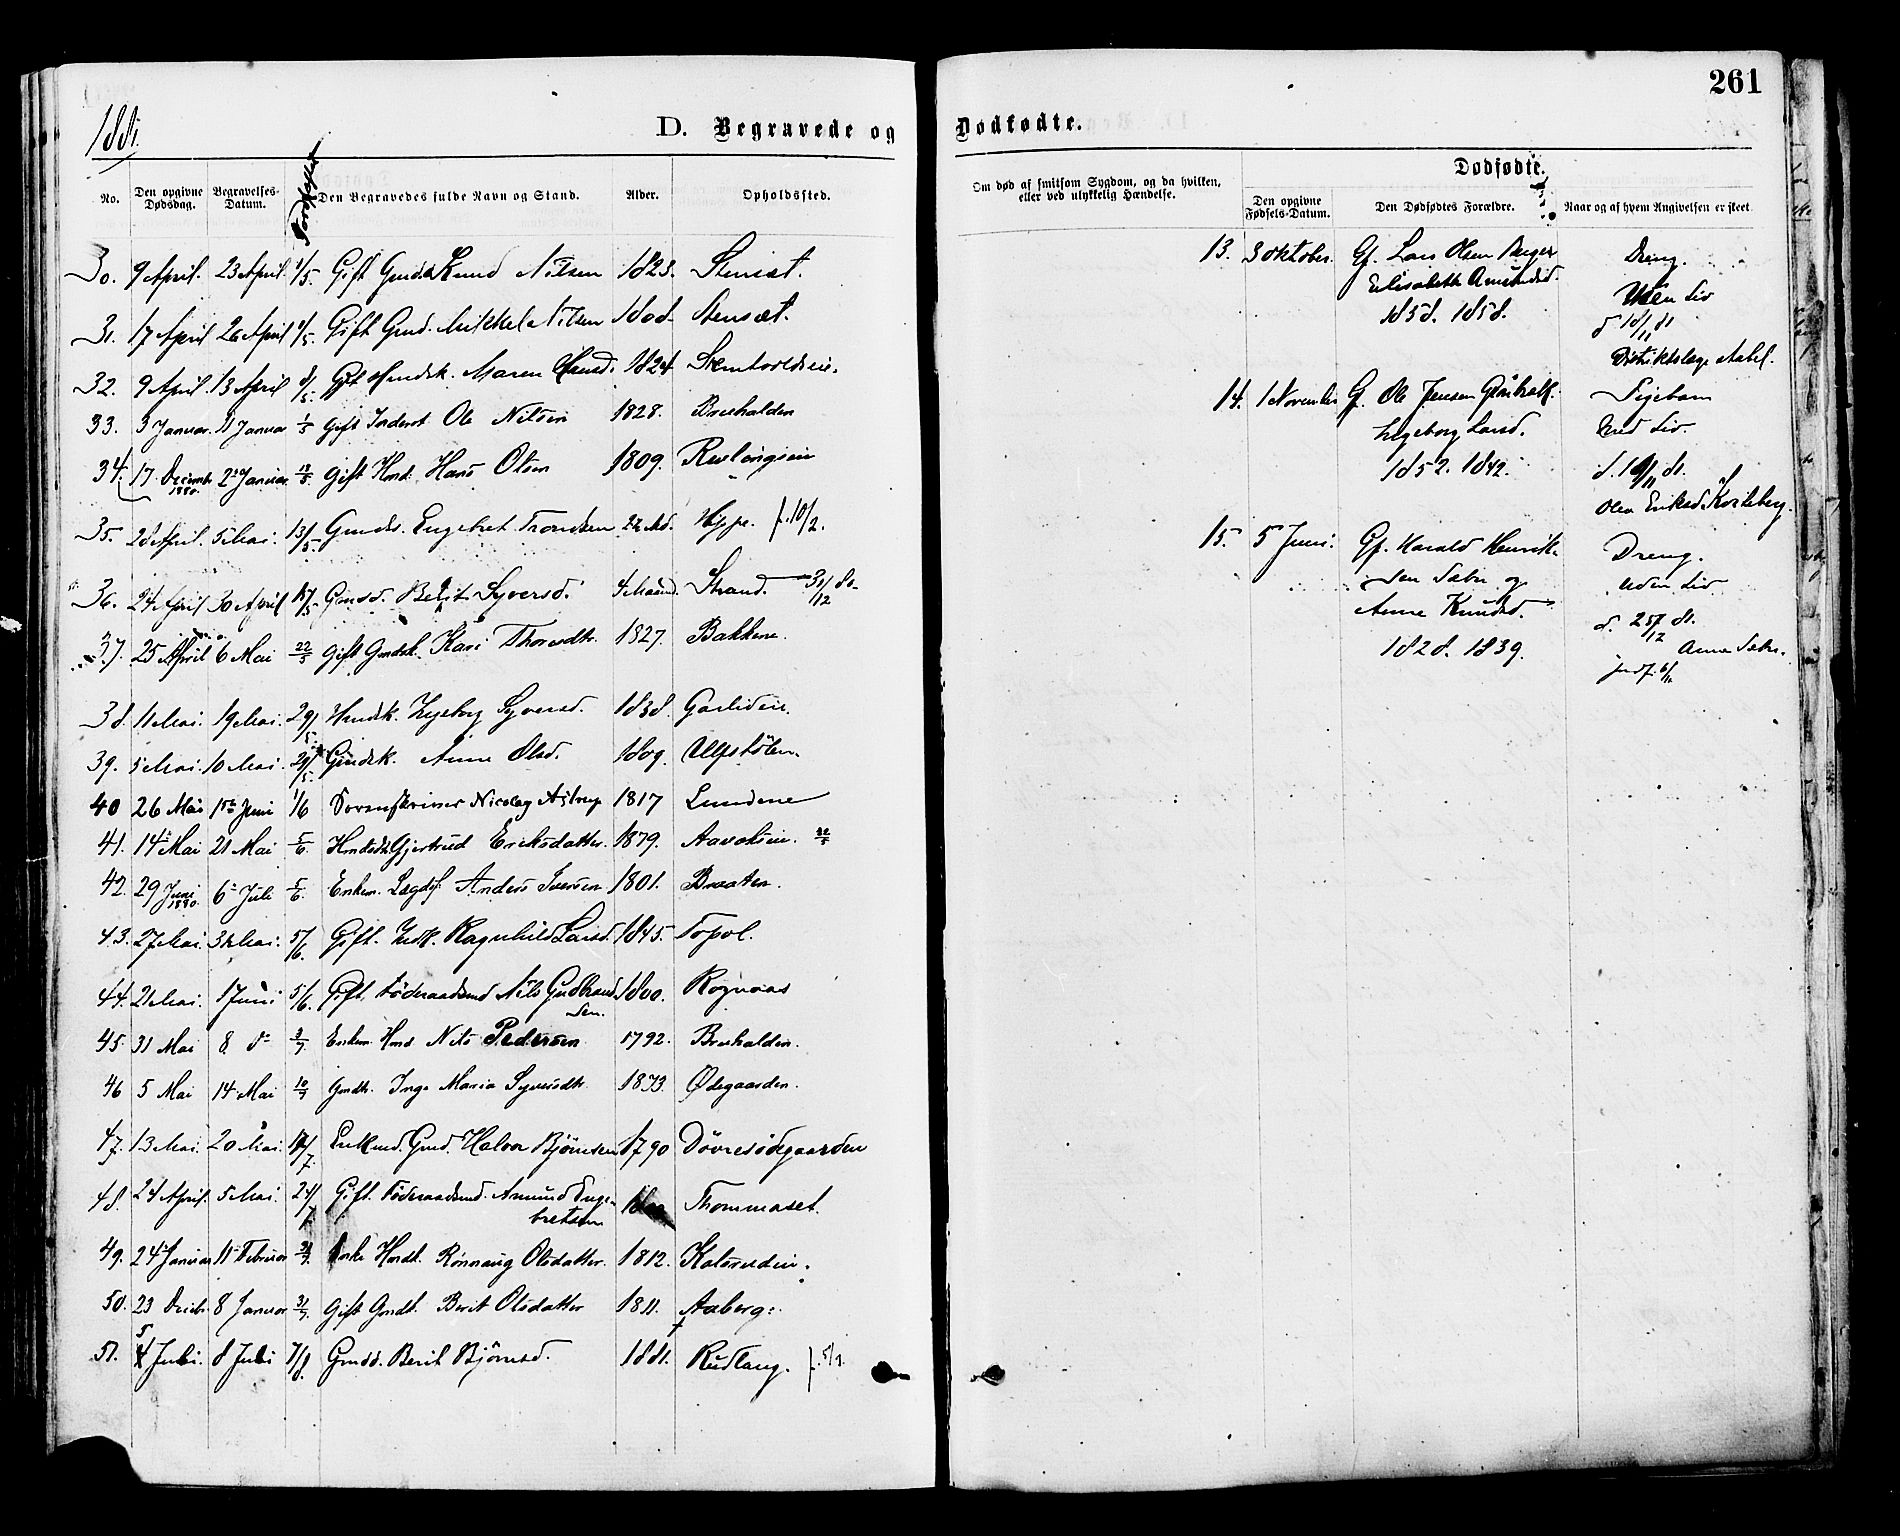 261
1881.
D. Begravede og Dødfødte.
No. Den opgivne Dødsdag. Begravelses-Datum. Jordfæstet Den Begravedes fulde Navn og Stand. Alder. Opholdssted.
30. 9 April. 23 April. 1/5 Gift Gmd. Knud Nilsen 1823. Stensæt.
31. 17 April 26 April 1/5 Gift Gmd. Mikkel Nilsen 1808 Stensæt.
32. 9 April. 13 April 8/5 Gift Maren Hansd. 1824
33. 3 Januar. 11 Januar 1/5 Gift Inderst Ole Nilsen 1828. Bruhalden
34. 17 Decembr 1880. 2 Januar. Gift Hmd. Hans Olsen 1809.
35. 28 April. 5 Mai. 13/5 Gmds. Engebret Trondsen Hippe. f. 10/2.
36. 24 April 30 April Gmsd. Berit Syversd. 4 Maaned. Strand. 31/12 80
37. 25 April 6 Mai 22/5 Gift Gmdsk. Kari Thoresdtr. 1827. Bakkene.
38. 11 Mai. 19 Mai. 29/5 Hmdsk. Ingeborg Syversd. 1838. Garlideie.
39. 5 Mai. 10 Mai. 29/5 Gmdsk. Anne Olsd. 1809. Ulfstølen.
40 26 Mai 1ste Juni 1/6 Sorenskriver Nicolay Astrup 1817 Lundene
41. 14 Mai 21 Mai 5/6. Gjertrud Eriksdatter. 1879. Aavolseie.
42. 29 Juni 1880. 6 Juli 5/6. Enkem. Lægdsl. Anders Iversen 1801. Braaten.
43. 27 Mai. 5/6. Gift. Indk. Ragnhild Larsd. 1845. Topol.
44. 21 Mai. 1 Juni 5/6. Gift. Föderaadsmd Nils Gudbrandsen. 1800. Rognaas
45. 31 Mai 8 do 3/7. Enkem. Hmd Nils Pedersen 1792. Bruhalden.
46 5 Mai 14 Mai 10/7 Gmdtr. Inge Maria Syversdtr. 1873. Ødegaarden.
47. 13 Mai. 20 Mai. Enkemd. Gmd. Halvor Björnsen 1790 Dövresödegaarden
48. 24 April. 5 Mai. 24/7. Gift. Föderaadsmd. Amund Engebretsen Thommaset.
49. 24 Januar 11 Februar Enke Hmdk. Rönnaug Olsdatter. 1812. Kolsrudeie.
50. 23 Decbr 8 Januar 31/7. Gift Gmdk. Berit Olsdatter 1811. Aaberg.
51. 5 Juli. 8 Juli 7/8. Gmdd. Berit Björnsd. 1881. Rudlang. f. 5/1.
Om død af smitsom Sygdom, og da hvilken, eller ved ulykkelig Hændelse.
Dødfødte.
Den opgivne Fødsels-Datum. Den Dødfødtes Forældre. Naar og af hvem Angivelsen er skeet.
13. 3 oktober. Gf. Lars Olsen Berger Dreng.
Elisabeth Amundsd. Uden Liv
1858. 1858. d 18/11 81
Distriktslæge Aabel.
14. 1 November Gf. Ole Jensen Pigebarn
Ingeborg Larsd. Uden Liv.
1852. 1842. 81.
Olea Eriksd.
15. 5 Juni. Gf. Harald Henriksen Sebu og Dreng.
Anne Knudsd. uden Liv.
1828. 1839. 81.
Anne Sebu.